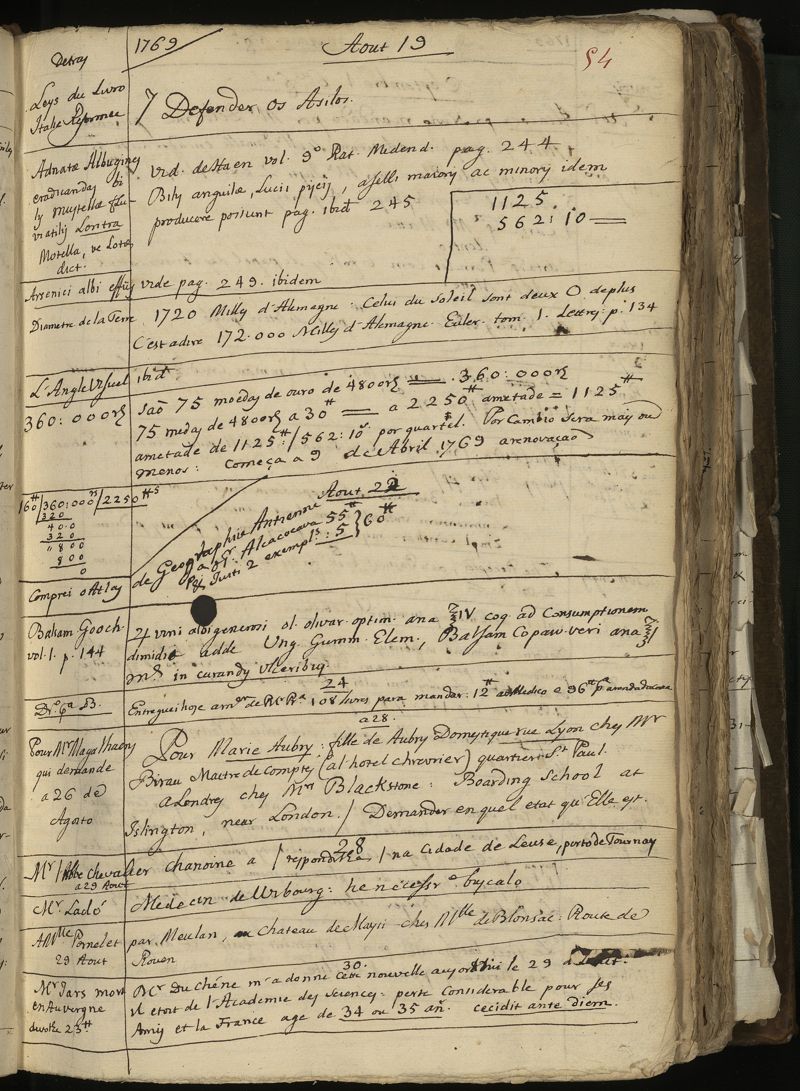 1769
Aout 19
54
Detray
Leys du Livro
Italie Reformee
7 Defender os Asilos.
Adnatæ Albuginey
eraduanday bi
ly muytellæ flu
viatily Lontra
Motella, ve Lote
dict.
vid. de Haen vol. 9º Rat. Medend. pag. 244.
Bily anguilæ, Lucii pycij, aselli maiory ac minory idem
producere possunt pag. ibid 245
1125.
562:10
Arsenici albi effig vide pag. 249. ibidem
Diametre de la Terre
1720 Milly d'Alemagne: Celui du Soleil sont deux 0 de plus
C'est adire 172.000 Milly d'Alemagne. Euler tom. 1. Lettry p. 134
L'Angle Visuel ibid
360:000rs
Saõ 75 moeday de ouro de 4800rs 360:000rs
75 meday de 4800rs a 30# a 2250# ametade = 1125#
ametade de 1125#:/562:10s por quartel. Por Cambio sera may ou
menos: Começa a 9 de Abril 1769 a renovaçaõ
160# 360:000rs 2250#s
320
400
320
800
800
0
Aout 22
de Geographie Antienne
a Sr. Alcacoeava 55#
Justi 2 exempls: 5 } 60#
Comprei o Atlay
Balsam Gooch
vol. 1. p. 144
vini albi generosi ol. olivar. optim. ana ℥IV coq. ad Consumptionem
dimidie adde Ung. Gumm. Elem., Balsam Copaiv. veri ana ℥I
in curandy ulceriby
24
Entreguei hoje 108 livres para mandar: 12# ao Medico e 96#
a 28.
Pour Mr Magalhaeny
qui demande
a 26 de
Agosto
Pour Marie Aubry: fille de Aubry Domeytique rue Lyon chez Mr
Birau Maitre de Compty (al hotel chevrier) quartier St Paul.
a Londrey chez Mrs Blackstone: Boarding School at
Islington, near London. / Demander en quel etat qu'Elle est.
28
Mr l'Abbe Chevalier chanoine a / respondi / na Cidade de Leuse, perto de Tournay
a 29 Aout
Mr Ladó
Medecin de Wibourg: he
A Mlle Pornelet
29 Aout
par Meulan, au Chateau de Maysi chez Mlle de Blonsac: Route de
Rouen
30.
Mr Jars mort
en Auvergne
Mr Du Chéne m'a donné cette nouvelle aujordhui le 29 d'Aout:
il etoit de l'Academie dey Sciencey: perte Considerable pour ses
Amiy et la France age de 34 ou 35 añ. cecidit ante diem.